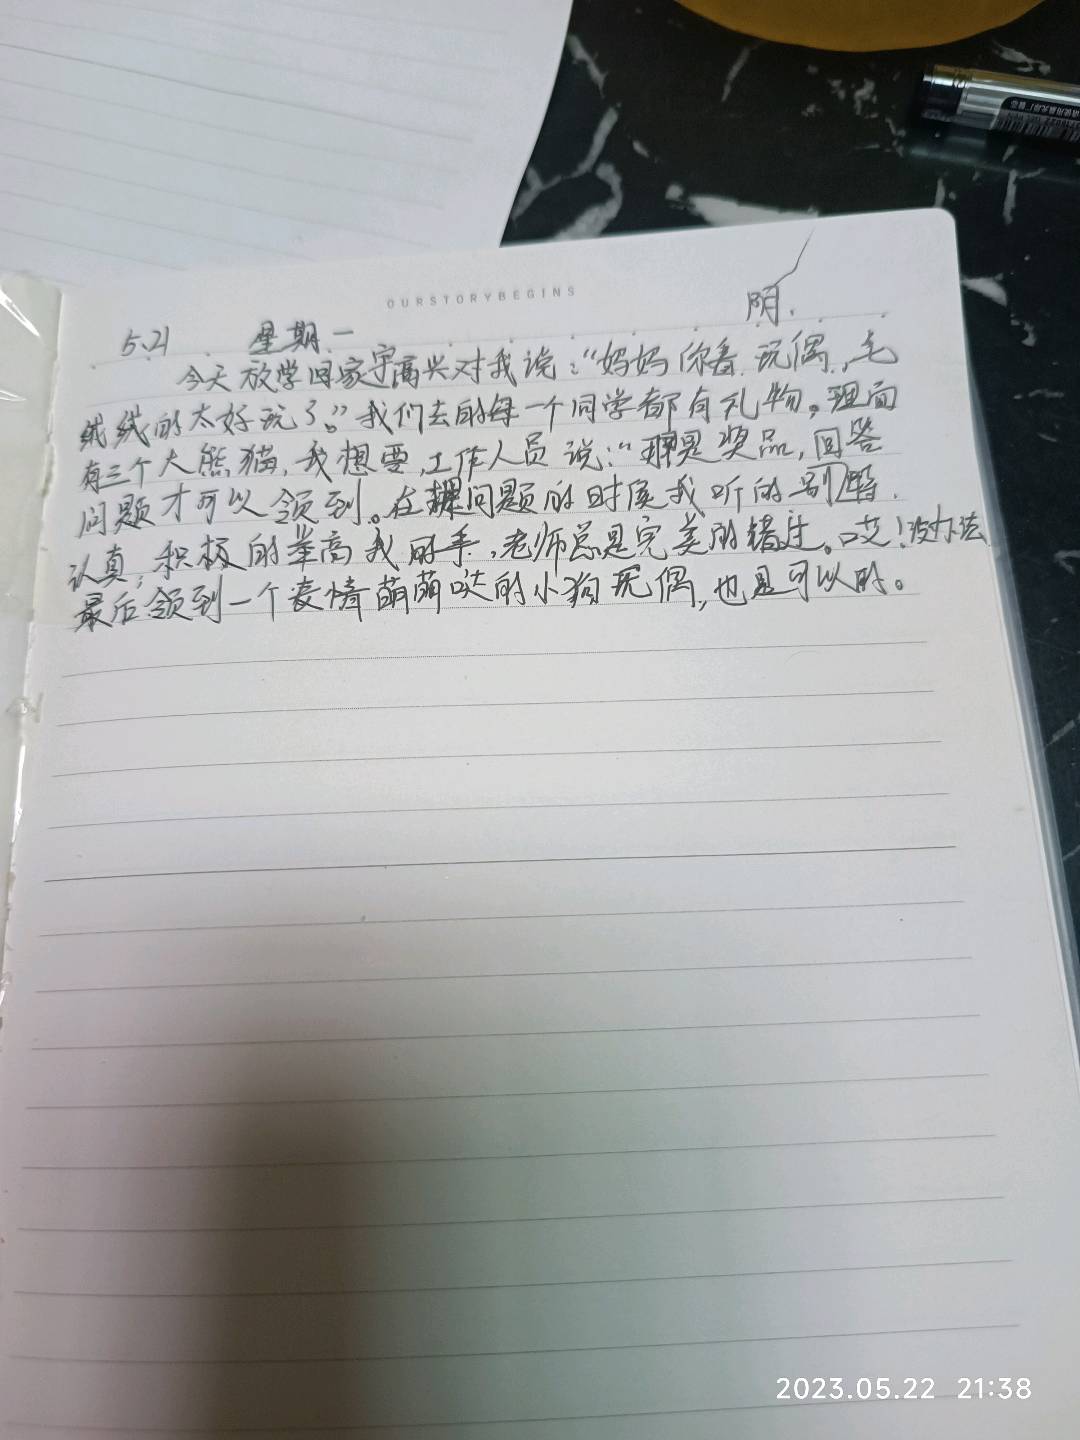 OURSTORYBEGINS
5.21 星期一 阴.
今天放学回家宇高兴对我说:“妈妈你看,玩偶,毛
绒绒的太好玩了。”我们去的每一个同学都有礼物。理面
有三个大熊猫,我想要,工作人员说:“那是奖品,回答
问题才可以领到。在提问题的时侯我听的别
认真,积极的举高我的手,老师总是完美的错过。哎!没办法
最后领到一个表情萌萌哒的小狗玩偶,也是可以的。
2023.05.22 21:38